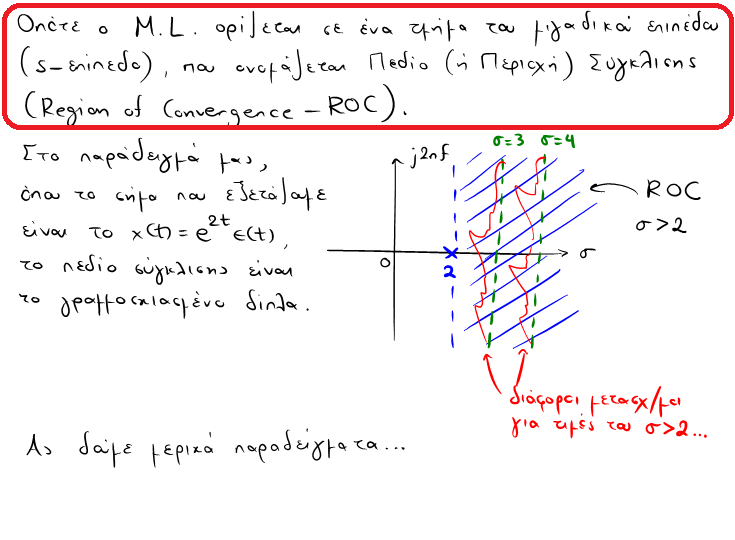 Οπότε ο M.L. ορίζεται σε ένα τμήμα του μιγαδικού επιπέδου
(s-επίπεδο), που ονομάζεται Πεδίο (ή Περιοχή) Σύγκλισης
(Region of Convergence – ROC).
Στο παράδειγμά μας,
όπου το σήμα που εξετάζαμε
είναι το x(t) = e^{2t} ε(t),
το πεδίο σύγκλισης είναι
το γραμμοσκιασμένο δίπλα.
j2πf
σ=3 σ=4
ROC
σ>2
0
2
σ
διάφοροι μετασχ/μοι
για τιμές του σ>2...
Ας δούμε μερικά παραδείγματα...